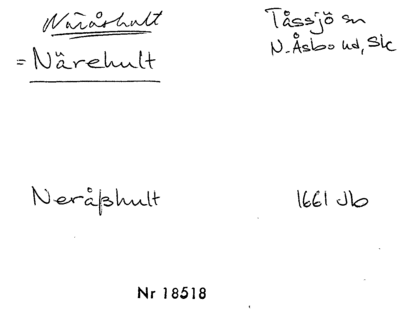 Näråshult
= Närehult
Tåssjö sn
N. Åsbo hd, Sk
Neråßhult
1661 Jb
Nr 18518